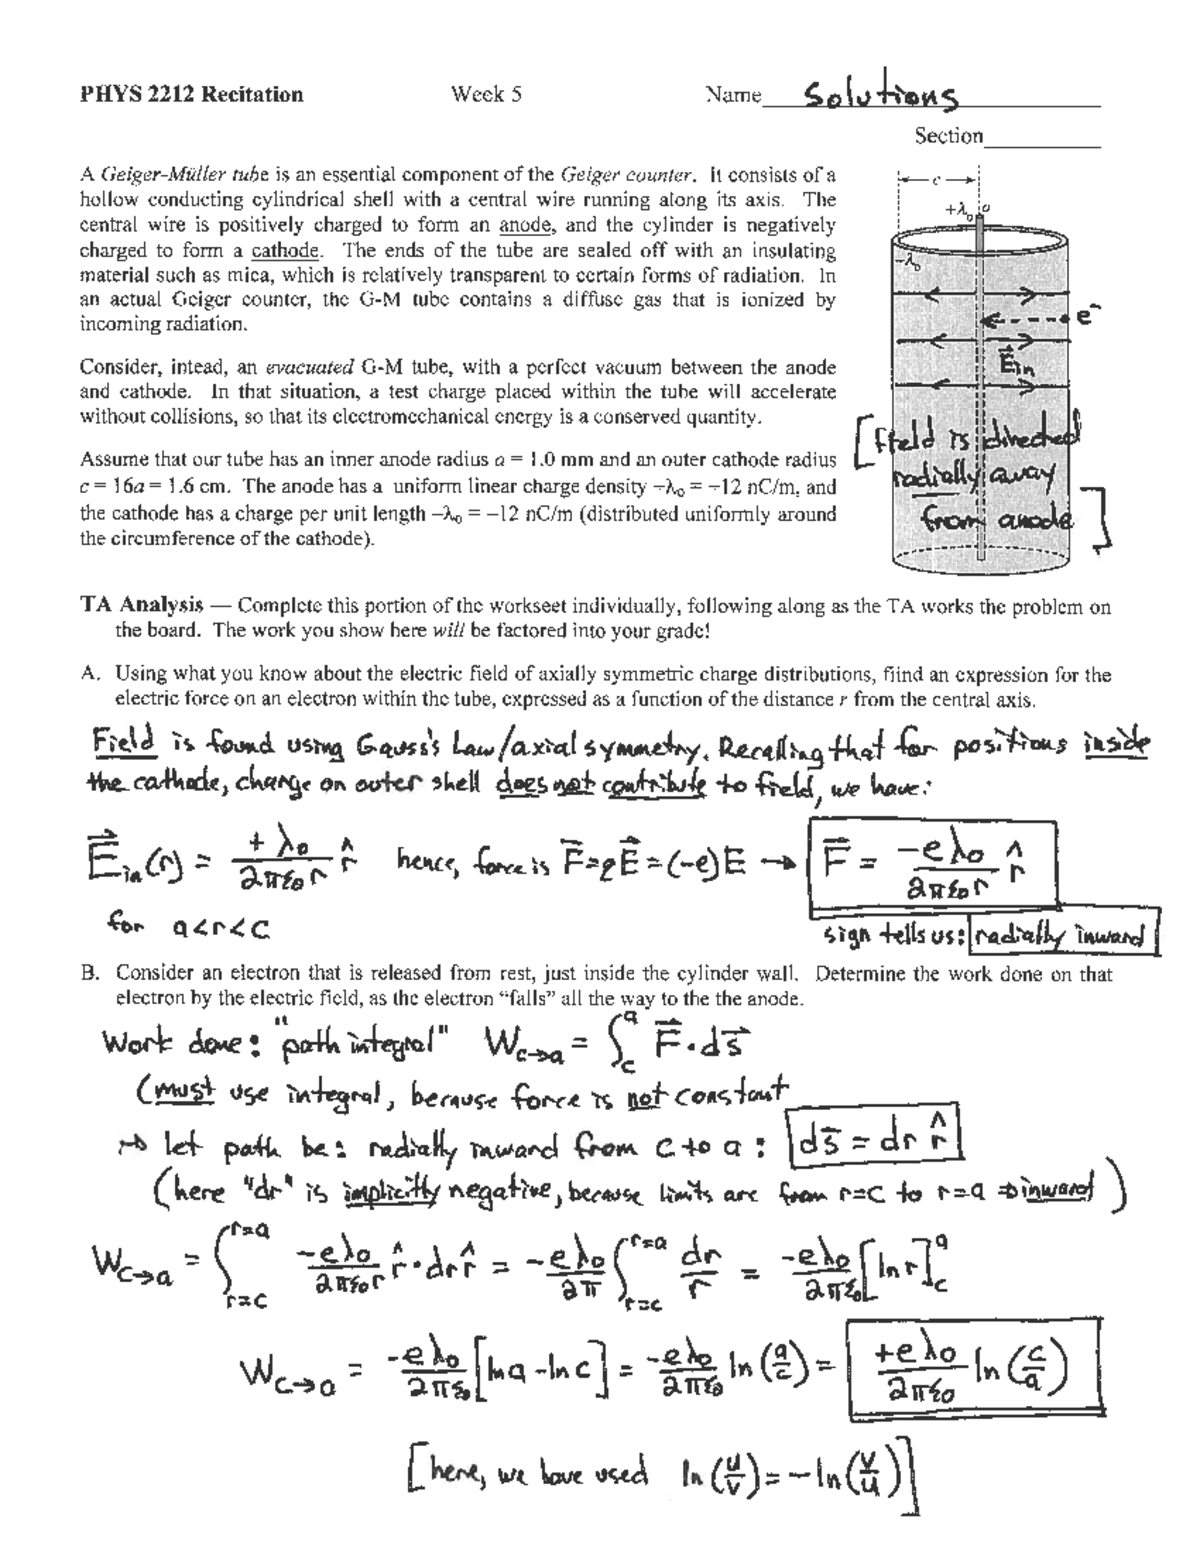 PHYS 2212 Recitation Week 5 Name Solutions
Section
A Geiger-Müller tube is an essential component of the Geiger counter. It consists of a
hollow conducting cylindrical shell with a central wire running along its axis. The
central wire is positively charged to form an anode, and the cylinder is negatively
charged to form a cathode. The ends of the tube are sealed off with an insulating
material such as mica, which is relatively transparent to certain forms of radiation. In
an actual Geiger counter, the G-M tube contains a diffuse gas that is ionized by
incoming radiation.
Consider, intead, an evacuated G-M tube, with a perfect vacuum between the anode
and cathode. In that situation, a test charge placed within the tube will accelerate
without collisions, so that its electromechanical energy is a conserved quantity.
Assume that our tube has an inner anode radius a = 1.0 mm and an outer cathode radius
c = 16a = 1.6 cm. The anode has a uniform linear charge density −λ₀ = −12 nC/m, and
the cathode has a charge per unit length −λ₀ = −12 nC/m (distributed uniformly around
the circumference of the cathode).
c
+λ₀
−λ₀
e⁻
E⃗in
[Field is directed
radially away
from anode]
TA Analysis — Complete this portion of the workseet individually, following along as the TA works the problem on
the board. The work you show here will be factored into your grade!
A. Using what you know about the electric field of axially symmetric charge distributions, fiind an expression for the
electric force on an electron within the tube, expressed as a function of the distance r from the central axis.
Field is found using Gauss's Law/axial symmetry. Recalling that for positions inside
the cathode, charge on outer shell does not contribute to field, we have:
E⃗in(r) = +λ₀/2πε₀r r̂ hence, force is F⃗=qE⃗=(-e)E → F⃗ = -eλ₀/2πε₀r r̂
for a<r<c
sign tells us: radially inward
B. Consider an electron that is released from rest, just inside the cylinder wall. Determine the work done on that
electron by the electric field, as the electron “falls” all the way to the the anode.
Work done: "path integral" Wc→a = ∫c^a F⃗·ds⃗
(must use integral, because force is not constant
→ let path be: radially inward from c to a: ds⃗ = dr r̂
(here "dr" is implicitly negative, because limits are from r=c to r=a ⇒ inward)
Wc→a = ∫r=c^r=a -eλ₀/2πε₀r r̂·dr r̂ = -eλ₀/2π ∫r=c^r=a dr/r = -eλ₀/2πε₀ [ln r]c^a
Wc→a = -eλ₀/2πε₀ [ln a - ln c] = -eλ₀/2πε₀ ln(a/c) = +eλ₀/2πε₀ ln(c/a)
[here, we have used ln(u/v) = -ln(v/u)]